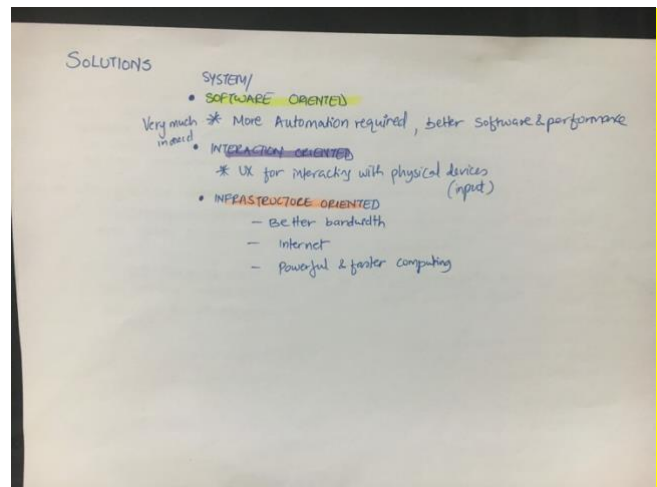 SOLUTIONS
SYSTEM/
• SOFTWARE ORIENTED
Very much * More Automation required, better software & performance
• INTERACTION ORIENTED
* UX for interacting with physical devices
(input)
• INFRASTRUCTURE ORIENTED
- Better bandwidth
- Internet
- Powerful & faster computing